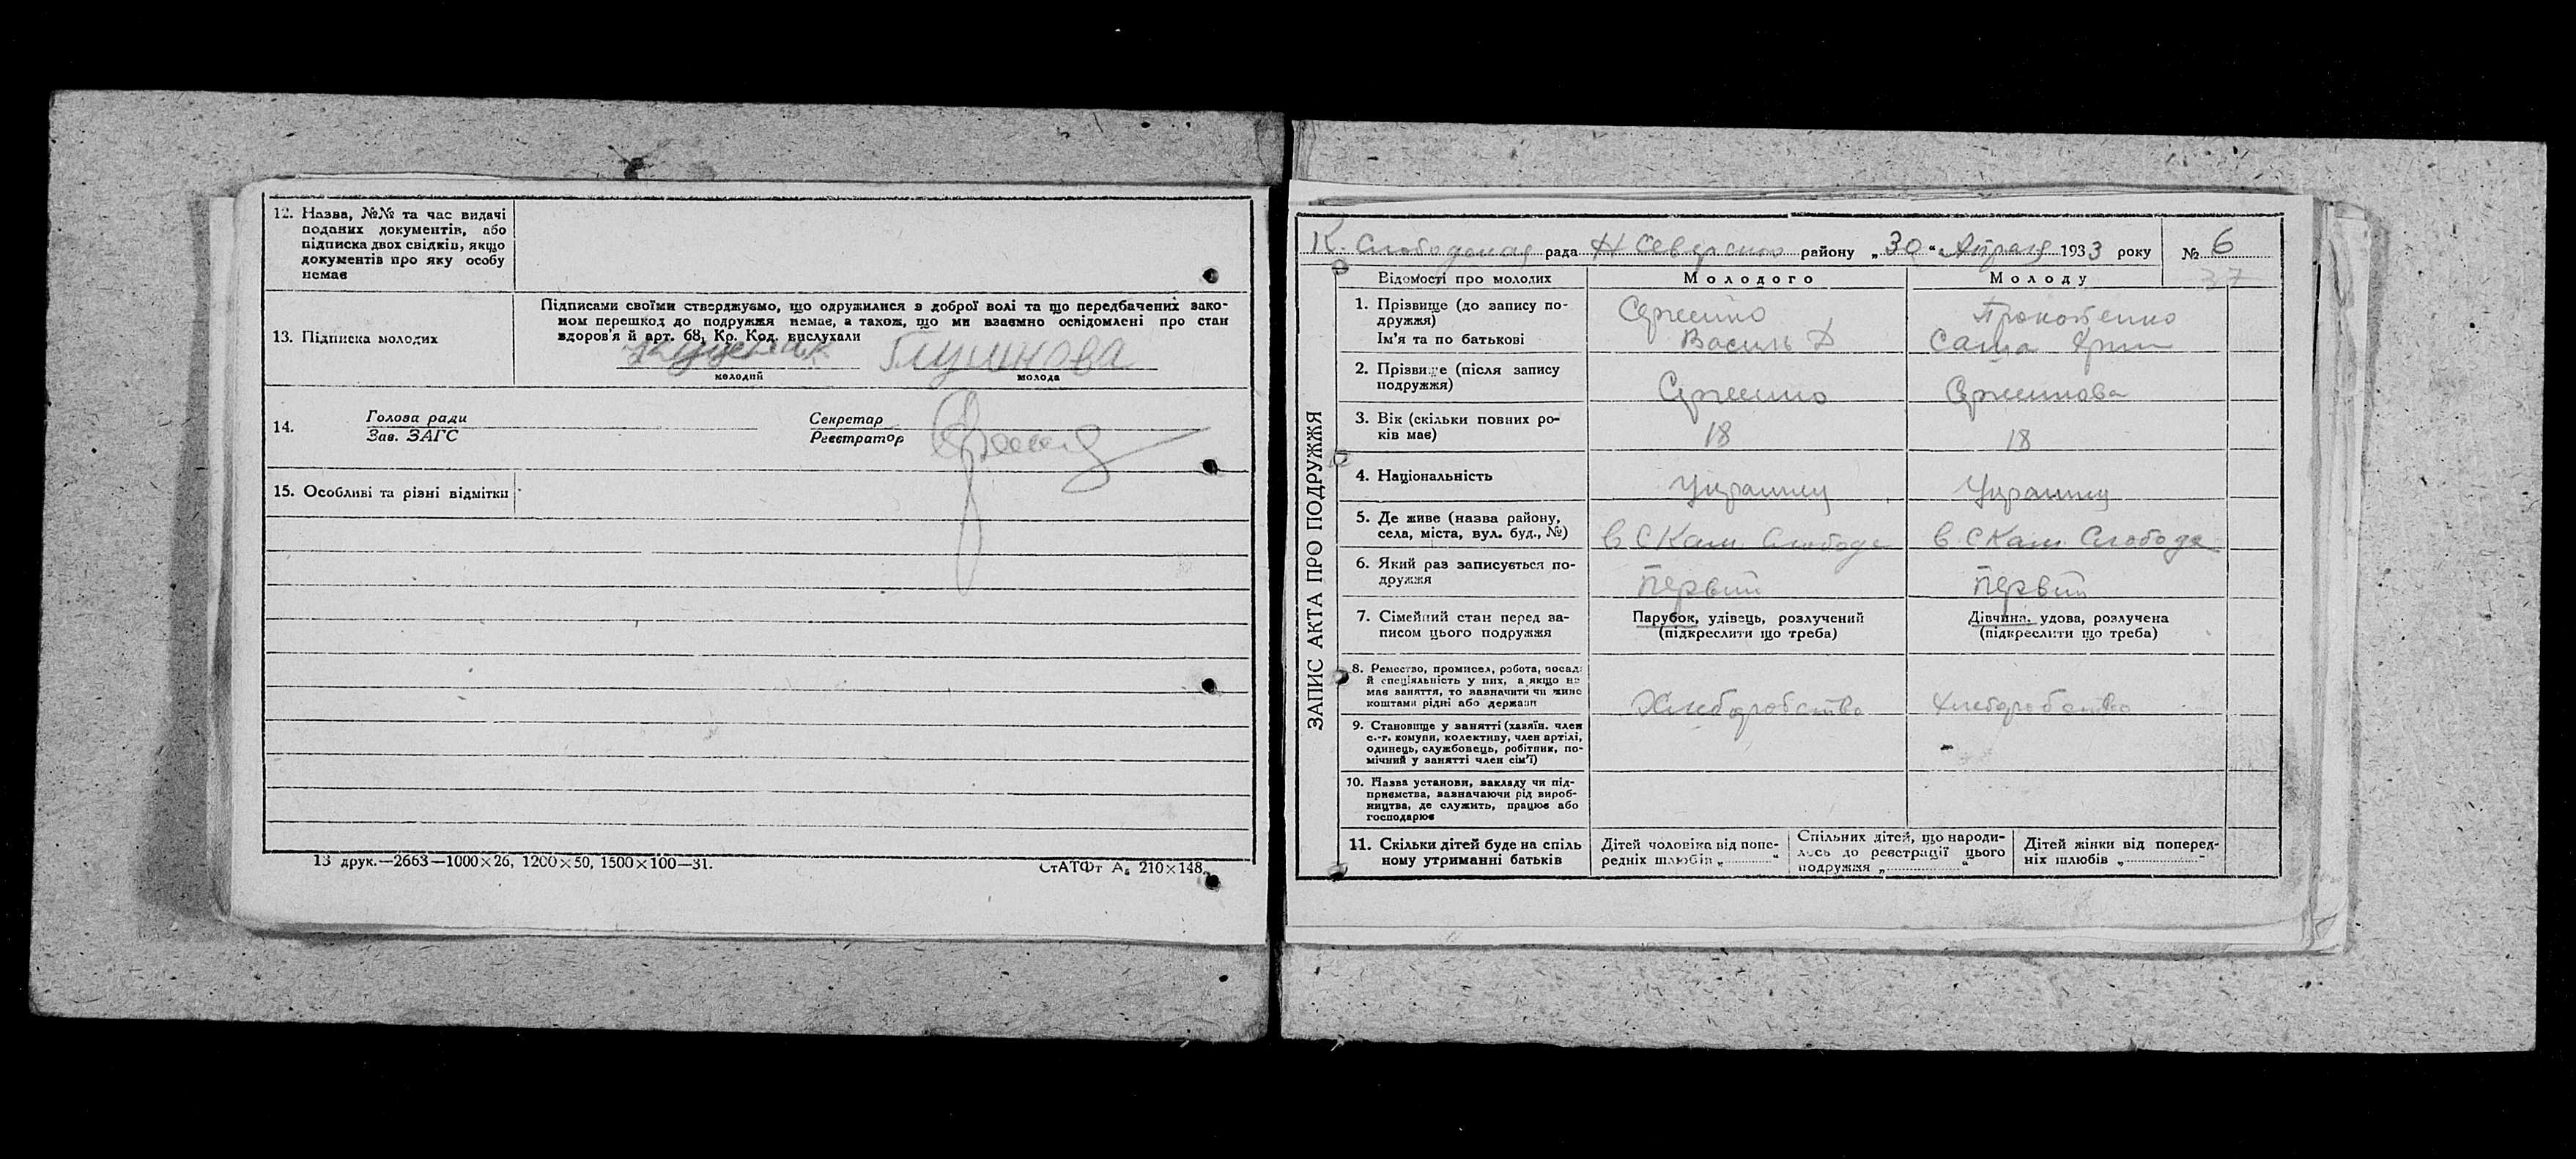 12. Назва, №№ та час видачі
поданих документів, або
підписка двох свідків, якщо
документів про яку особу
немає
13. Підписка молодих
Підписами своїми стверджуємо, що одружилися з доброї волі та що передбачених зако-
ном перешкод до подружжя немає, а також, що ми взаємно освідомлені про стан
здоров'я й арт. 68, Кр. Код. вислухали
Глушкова
молодий
молода
14.
Голова ради
Зав. ЗАГС
Секретар
Реєстратор
15. Особливі та різні відмітки
13 друк.—2663—1000×26, 1200×50, 1500×100—31.
СтАТФт А₅ 210×148.
ЗАПИС АКТА ПРО ПОДРУЖЖЯ
К. Слободская рада Н Северского району „30“ Апреля 1933 року
№ 6
37
Відомості про молодих
Молодого
Молоду
1. Прізвище (до запису по-
дружжя)
Ім'я та по батькові
Сергиенко
Василь Д
Прокопенко
Саша
2. Прізвище (після запису
подружжя)
Сергиенко
3. Вік (скільки повних ро-
ків має)
18
18
4. Національність
Украинец
Украинец
5. Де живе (назва району,
села, міста, вул. буд., №)
в С Кам. Слобода
в С Кам. Слобода
6. Який раз записується по-
дружжя
Первий
Первий
7. Сімейний стан перед за-
писом цього подружжя
Парубок, удівець, розлучений
(підкреслити що треба)
Дівчина, удова, розлучена
(підкреслити що треба)
8. Ремество, промисел, робота, посада
й спеціяльність у них, а якщо не
має заняття, то зазначити чи живе
коштами рідні або держави
Хлеборобство
Хлеборобство
9. Становище у занятті (хазяїн. член
с.-г. комуни, колективу, член артілі,
одинець, службовець, робітник, по-
мічний у занятті член сім'ї)
10. Назва установи, закладу чи під-
приємства, зазначаючи рід вироб-
ництва, де служить, працює або
господарює
11. Скільки дітей буде на спіль
ному утриманні батьків
Дітей чоловіка від попе-
редніх шлюбів „ “
Спільних дітей, що народи-
лось до реєстрації цього
подружжя „ “
Дітей жінки від поперед-
ніх шлюбів „ “